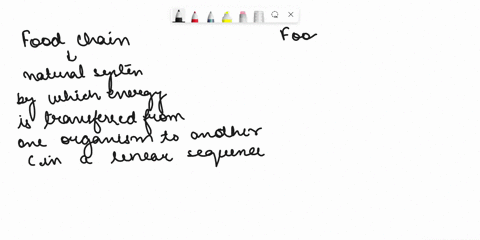 Food chain
Foo
natural systen
by which energy
is transferred from
one organism to another
(in a linear sequence